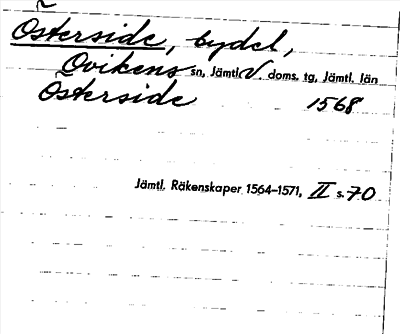 Österside, bydel,
Ovikens sn, Jämtl. V. doms. tg, Jämtl. län
Österside 1568
Jämtl. Räkenskaper 1564–1571, II s. 70